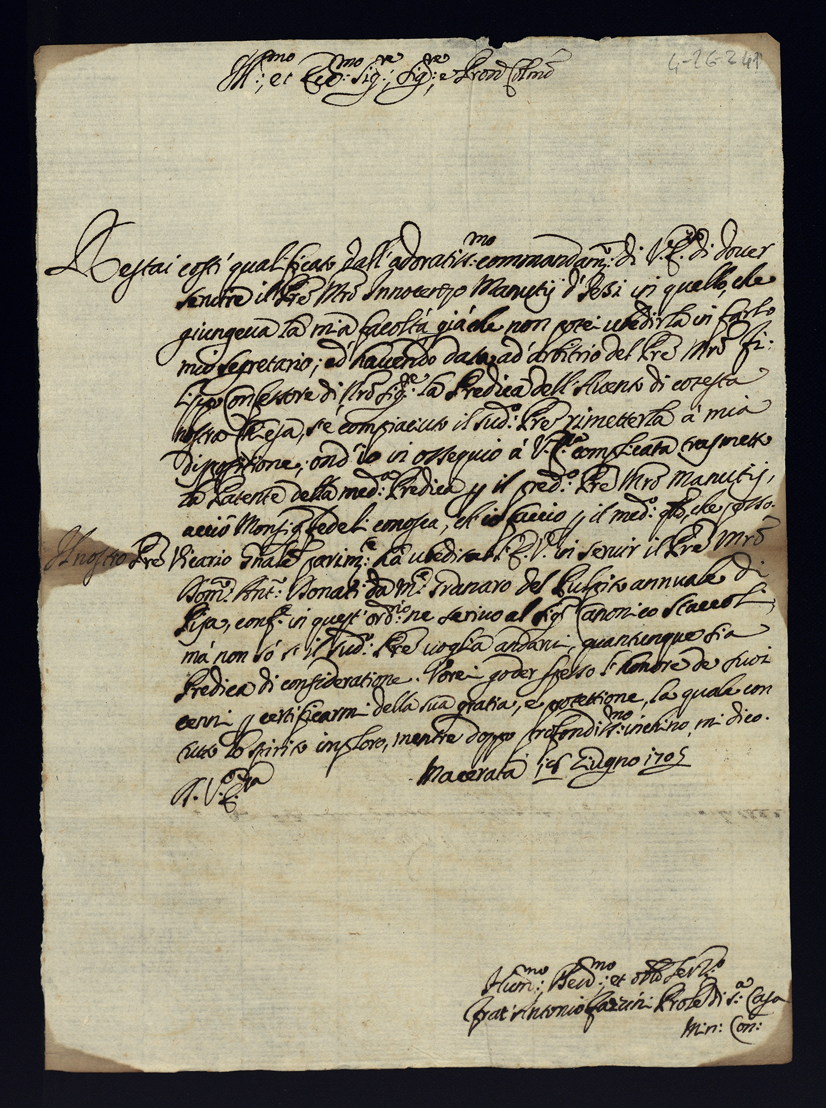 4-26-241
Ill:mo, et Re:mo Sig:re, Sig:re e Pron Colmo
Restai così qualificato dall'adoratiss:mo commandam:to di V.E. di dover
servire il Pre Mro Innocenzo Manutij d'Iesi in quello, che
giungeva la mia facoltà, già che non potei ubedirla in farlo
mio segretario; ed havendo data ad'arbitrio del Pre Mro Fi:
Confessore di Mro Sig:e la Predica dell'Avento di cotesta
nostra Chiesa, s'è compiaciuto il sud:o Pre rimetterla à mia
dispositione; ond'io in ossequio à V.E. trasmetto
la Patente della med:a Predica p il pred:o Pre Mro Manutij,
acciò Monsig: Fedeli conosca, ch'io faccio p il med:o qto, che posso.
Il nostro Pre Vicario Gnale parim:e hà ubedito V.E. in servir il Pre Mro
Dom:o Ant:o Donati da M:e Granaro del Pulpito annuale di
Pisa, conf:e in quest'ord:io ne scrivo al Sig:r Canonico Staccoli,
mà non sò se il sud:o Pre voglia andarvi, quantunque sia
Predica di consideratione. Vorei goder spesso l'honore de suoi
cenni p certificarmi della sua gratia, e protettione, la quale con
tutto lo spirito imploro, mentre doppo profondiss:mo inchino, mi dico.
Macerata 15 Giugno 1705
D. V. E:za
Hum:mo Dev:mo, et obblo Serv:o
Frat'Antonio Prote di S:a Casa
Min: Con: